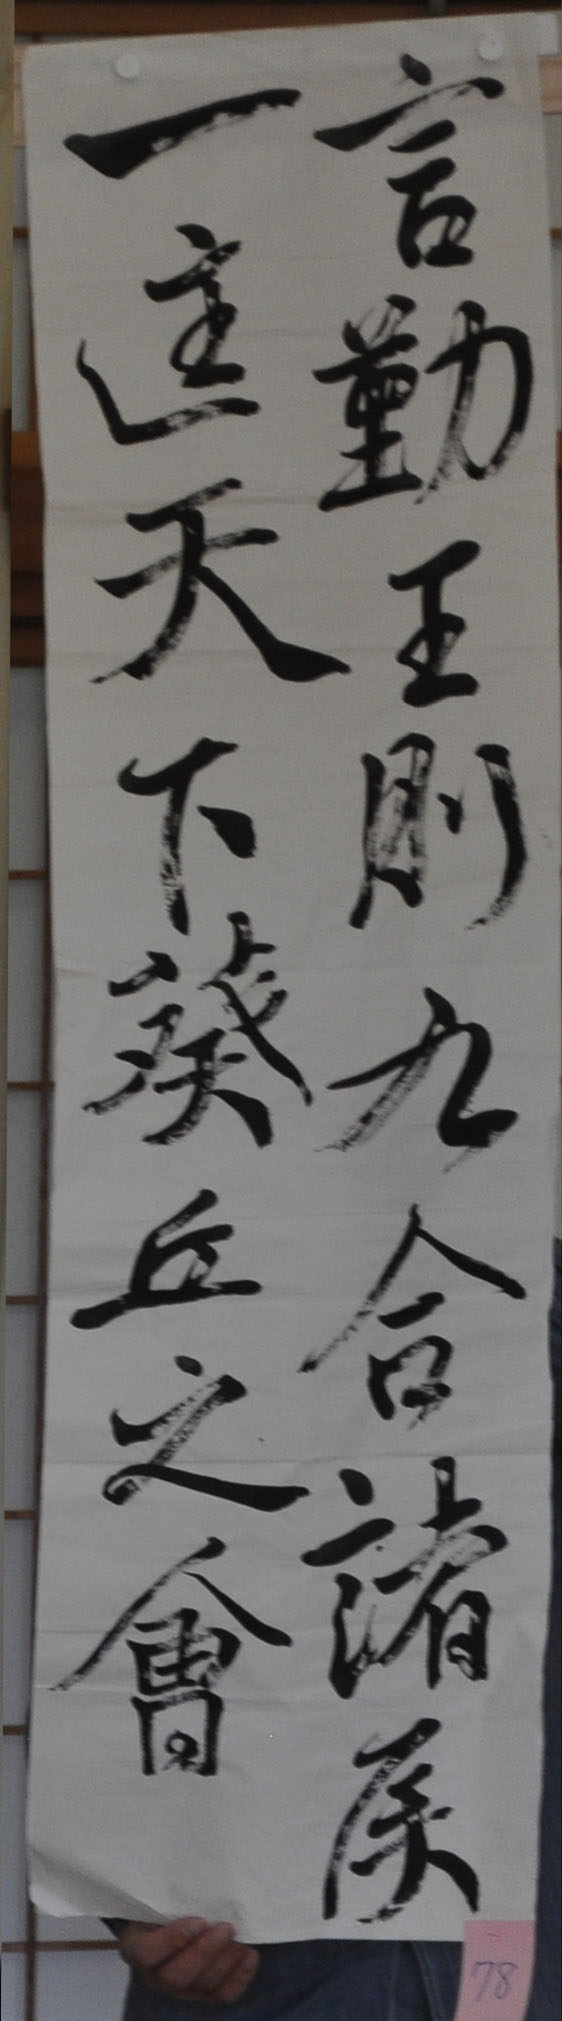 言勤王則九合諸侯
一匡天下葵丘之會
78